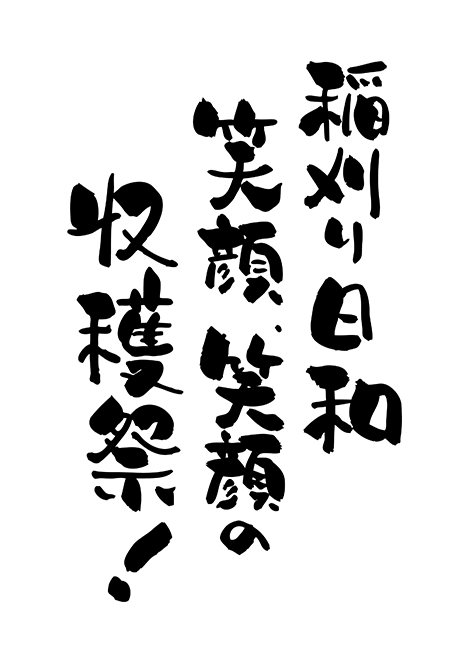 稲刈り日和
笑顔、笑顔の
収穫祭！